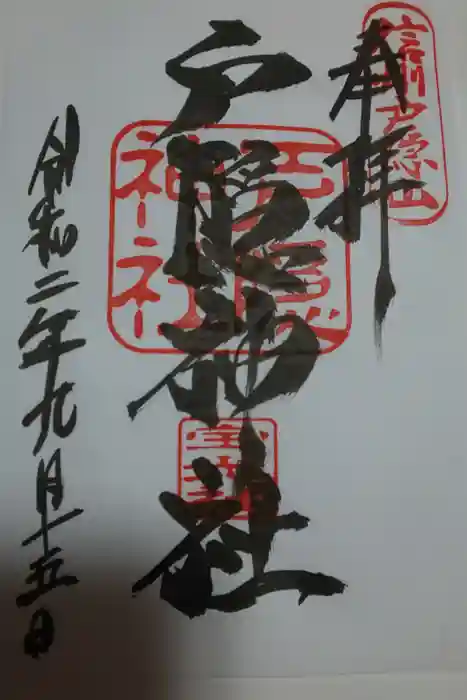 信州戸隠山
奉拝
戸隠神社
戸隠
神社
宝光社
令和二年九月十五日